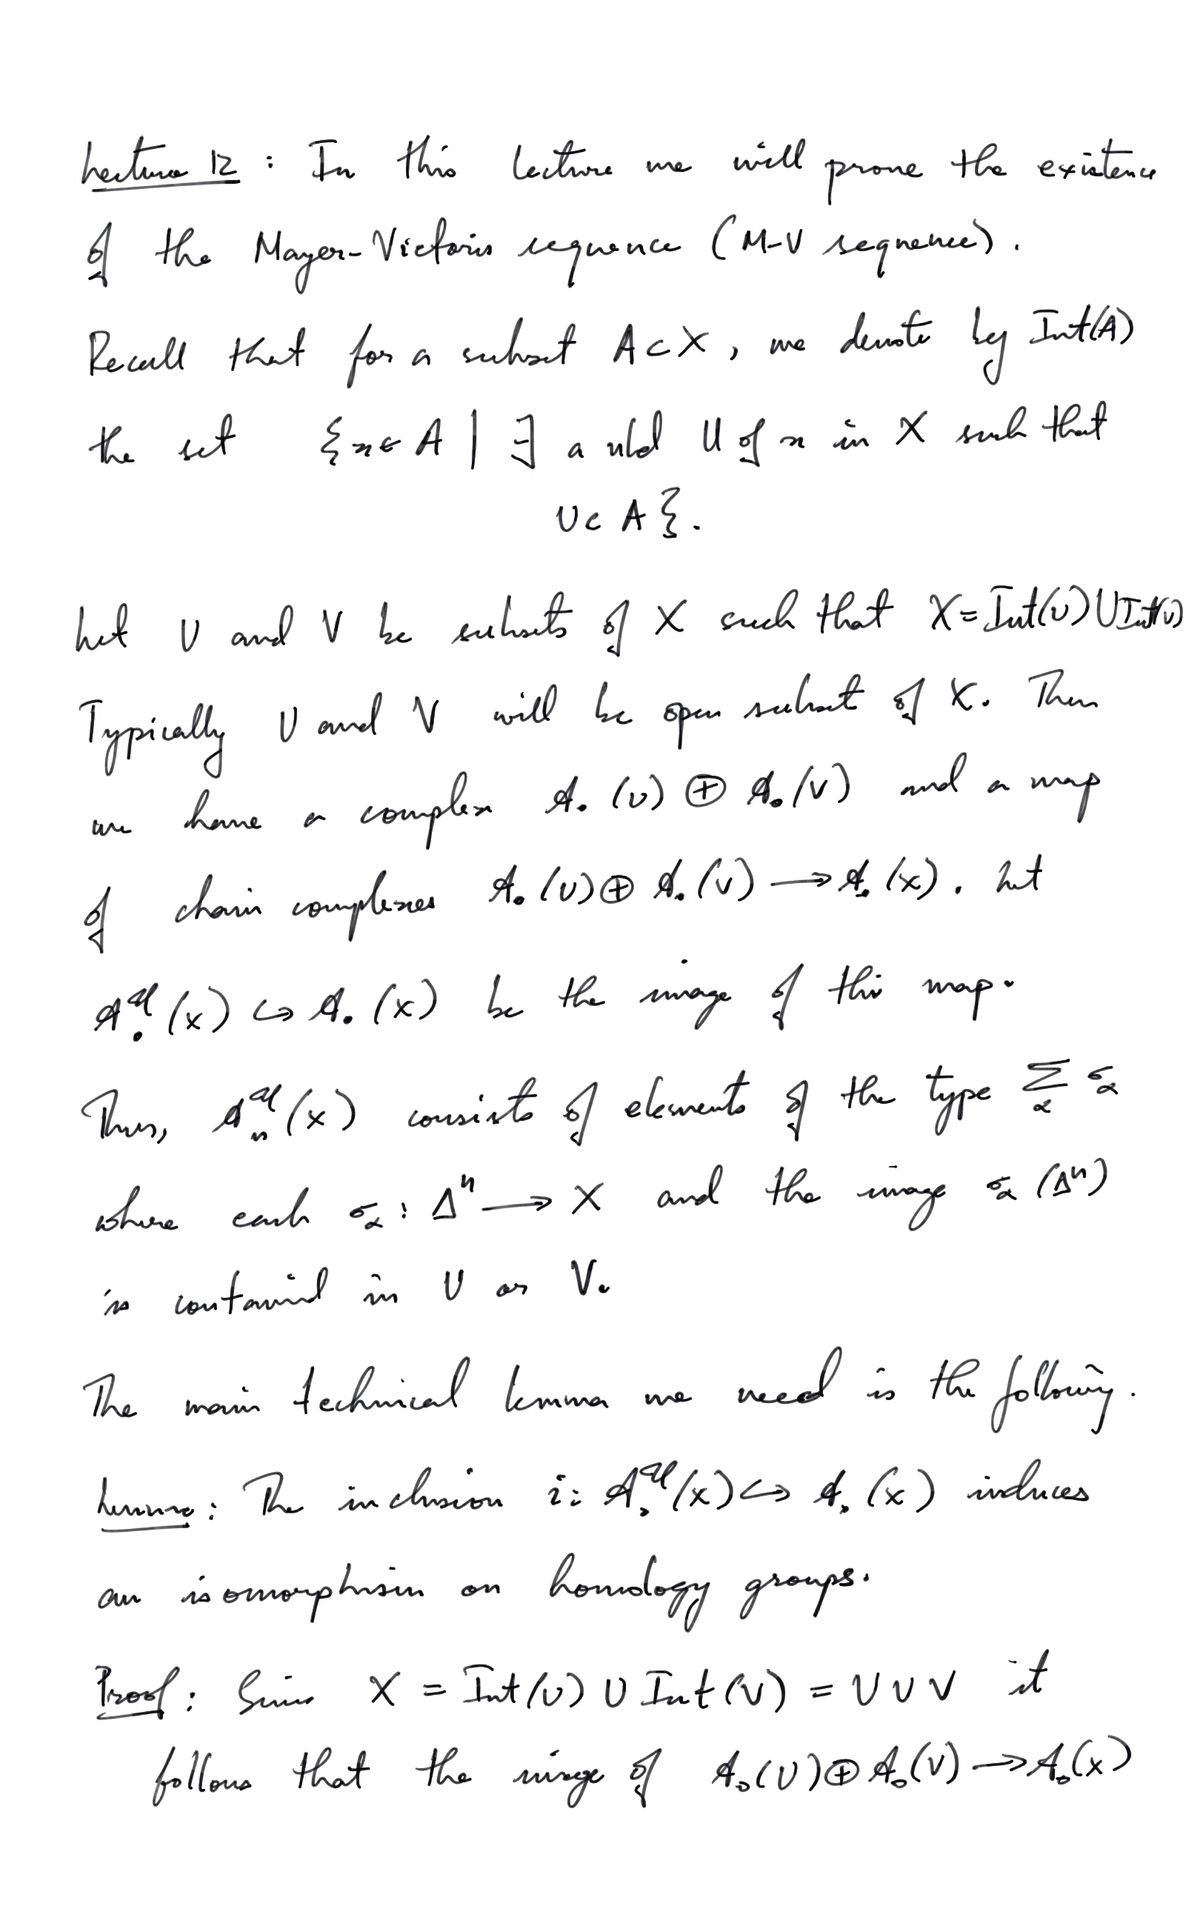 Lecture 12 : In this lecture we will prove the existence
of the Mayer-Victoris sequence (M-V sequence).
Recall that for a subset A ⊂ X, we denote by Int(A)
the set {x ∈ A | ∃ a nbd U of x in X such that
U ⊂ A}.
Let U and V be subsets of X such that X = Int(U) ∪ Int(V)
Typically U and V will be open subset of X. Then
we have a complex A.(U) ⊕ A.(V) and a map
of chain complexes A.(U) ⊕ A.(V) ⟶ A.(X). Let
A.^𝒰(X) ↪ A.(X) be the image of this map.
Thus, A_n^𝒰(X) consists of elements of the type ∑_α σ_α
where each σ_α : Δ^n ⟶ X and the image σ_α(Δ^n)
is contained in U or V.
The main technical lemma we need is the following.
Lemma: The inclusion i: A.^𝒰(X) ↪ A.(X) induces
an isomorphism on homology groups.
Proof: Since X = Int(U) ∪ Int(V) = U ∪ V it
follows that the image of A_0(U) ⊕ A_0(V) ⟶ A_0(X)